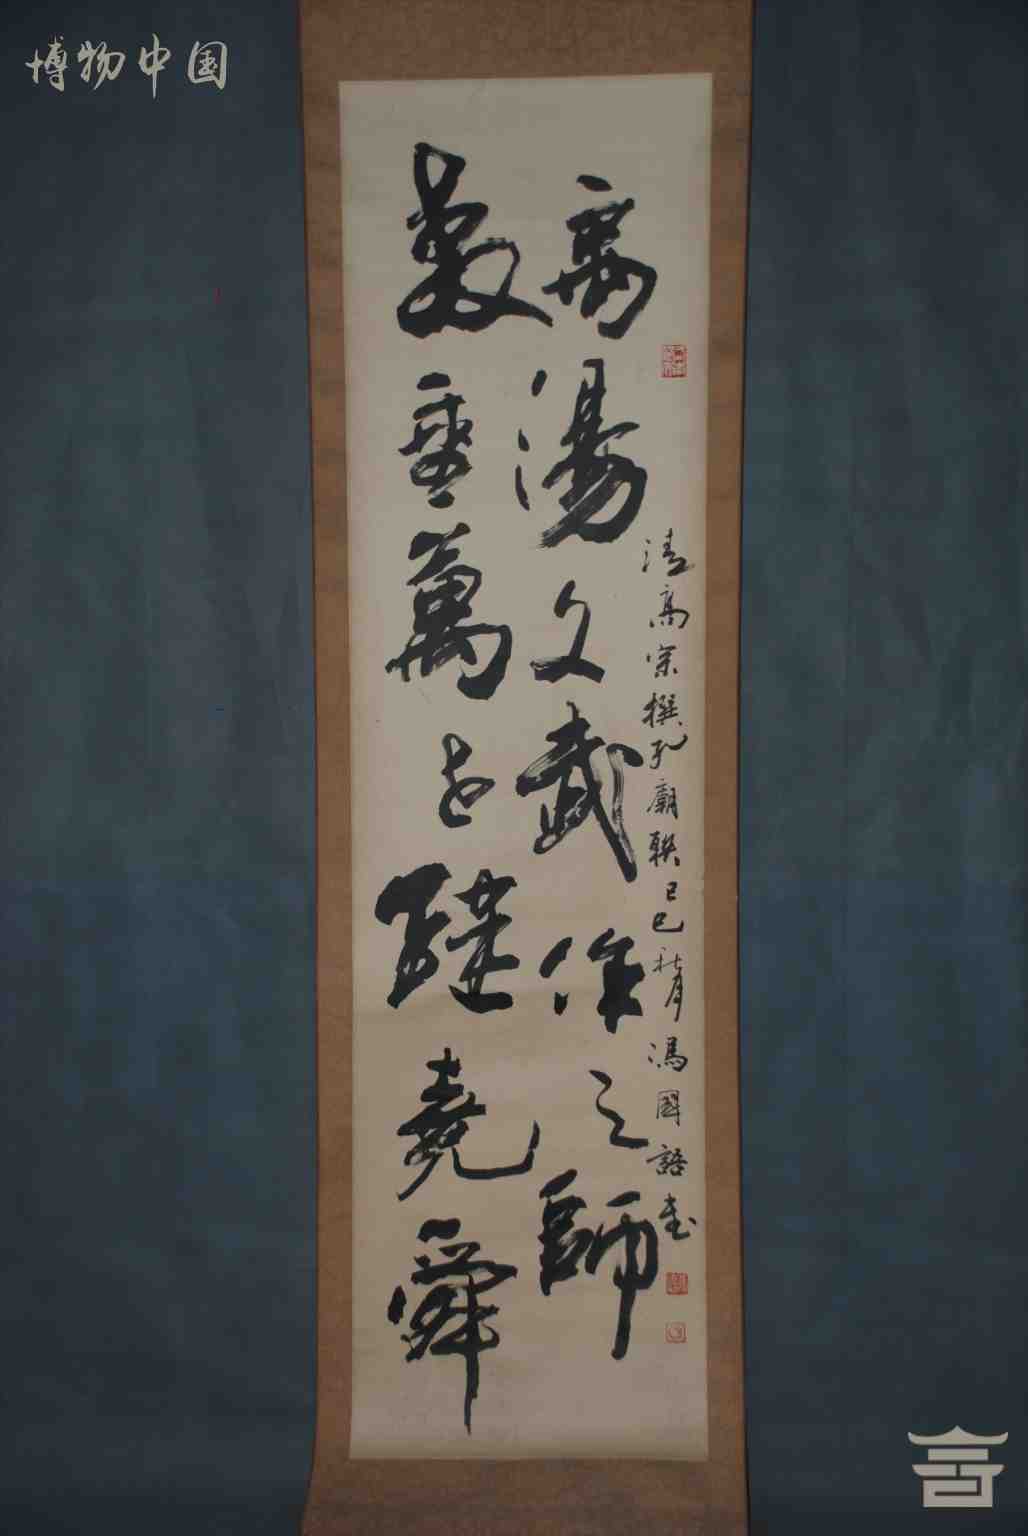 博物中国
教垂萬世繼堯舜
禹湯文武作之師
清高宗撰孔廟聯己巳秋月馮國語書